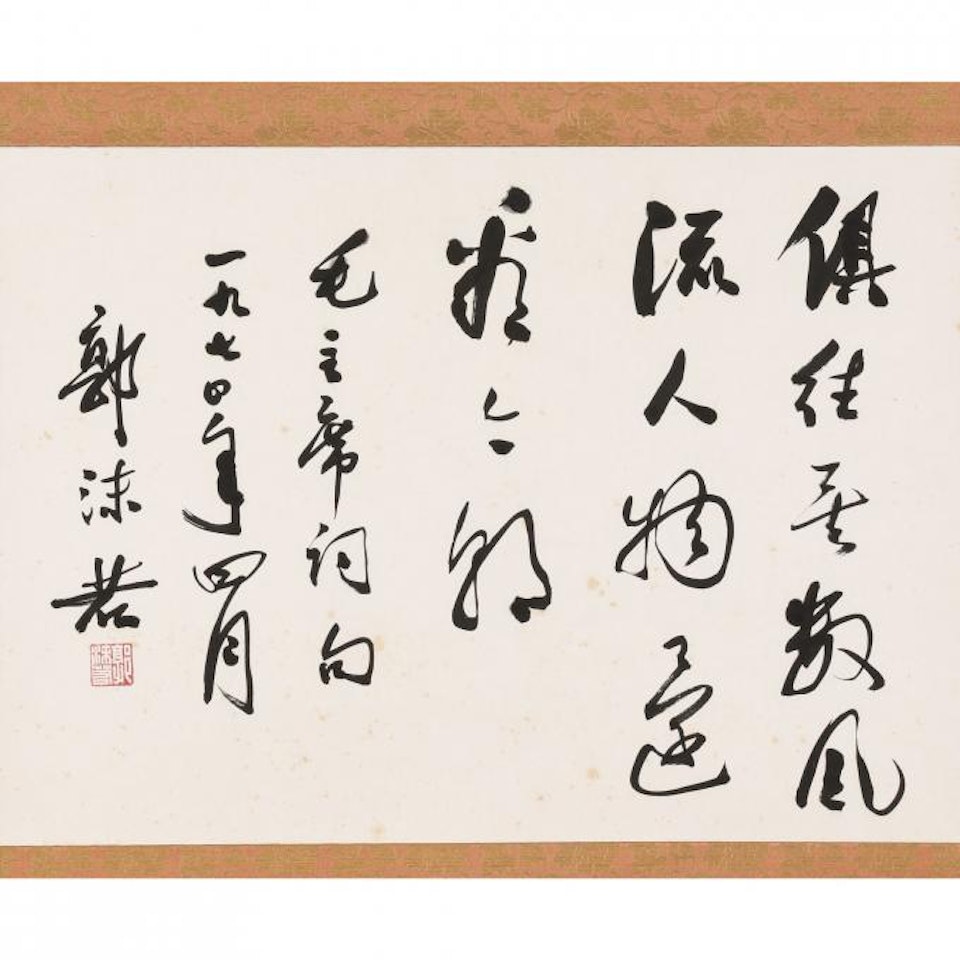 俱往矣数风
流人物还
看今朝
毛主席词句
一九七四年四月
郭沫若
郭沫若